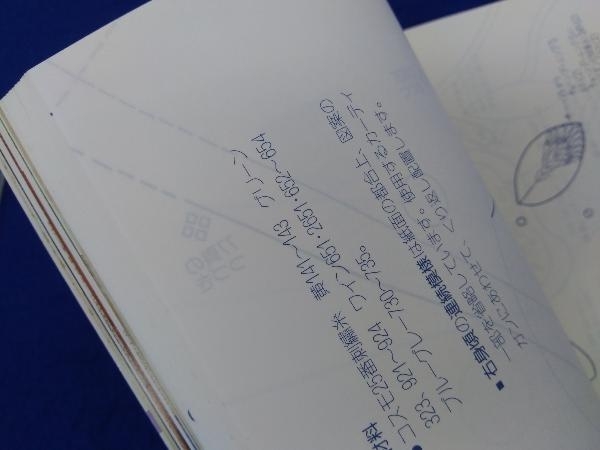 材料
● コスモ25番刺繍糸 黄141～143 グリーン
323、921～924 ワイン651・2651・652～654
ブルーグレー730～735。
■ 右身頃の連続模様は紙面の都合上、図案の
一部を省略しています。使用するカーディ
ガンにあわせて、くり返し配置します。